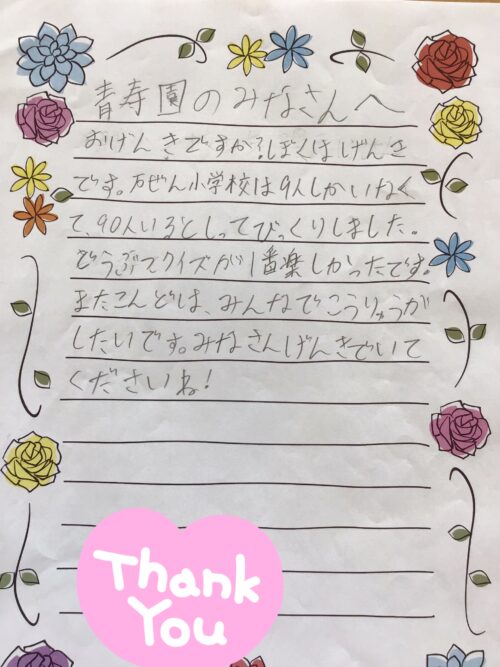 青寿園のみなさんへ
おげんきですか?ぼくはげんき
です。万ぜん小学校は9人しかいなく
て、90人いるとしってびっくりしました。
どうぶつクイズが1番楽しかったです。
またこんどは、みんなでこうりゅうが
したいです。みなさんげんきでいて
くださいね!
Thank
You